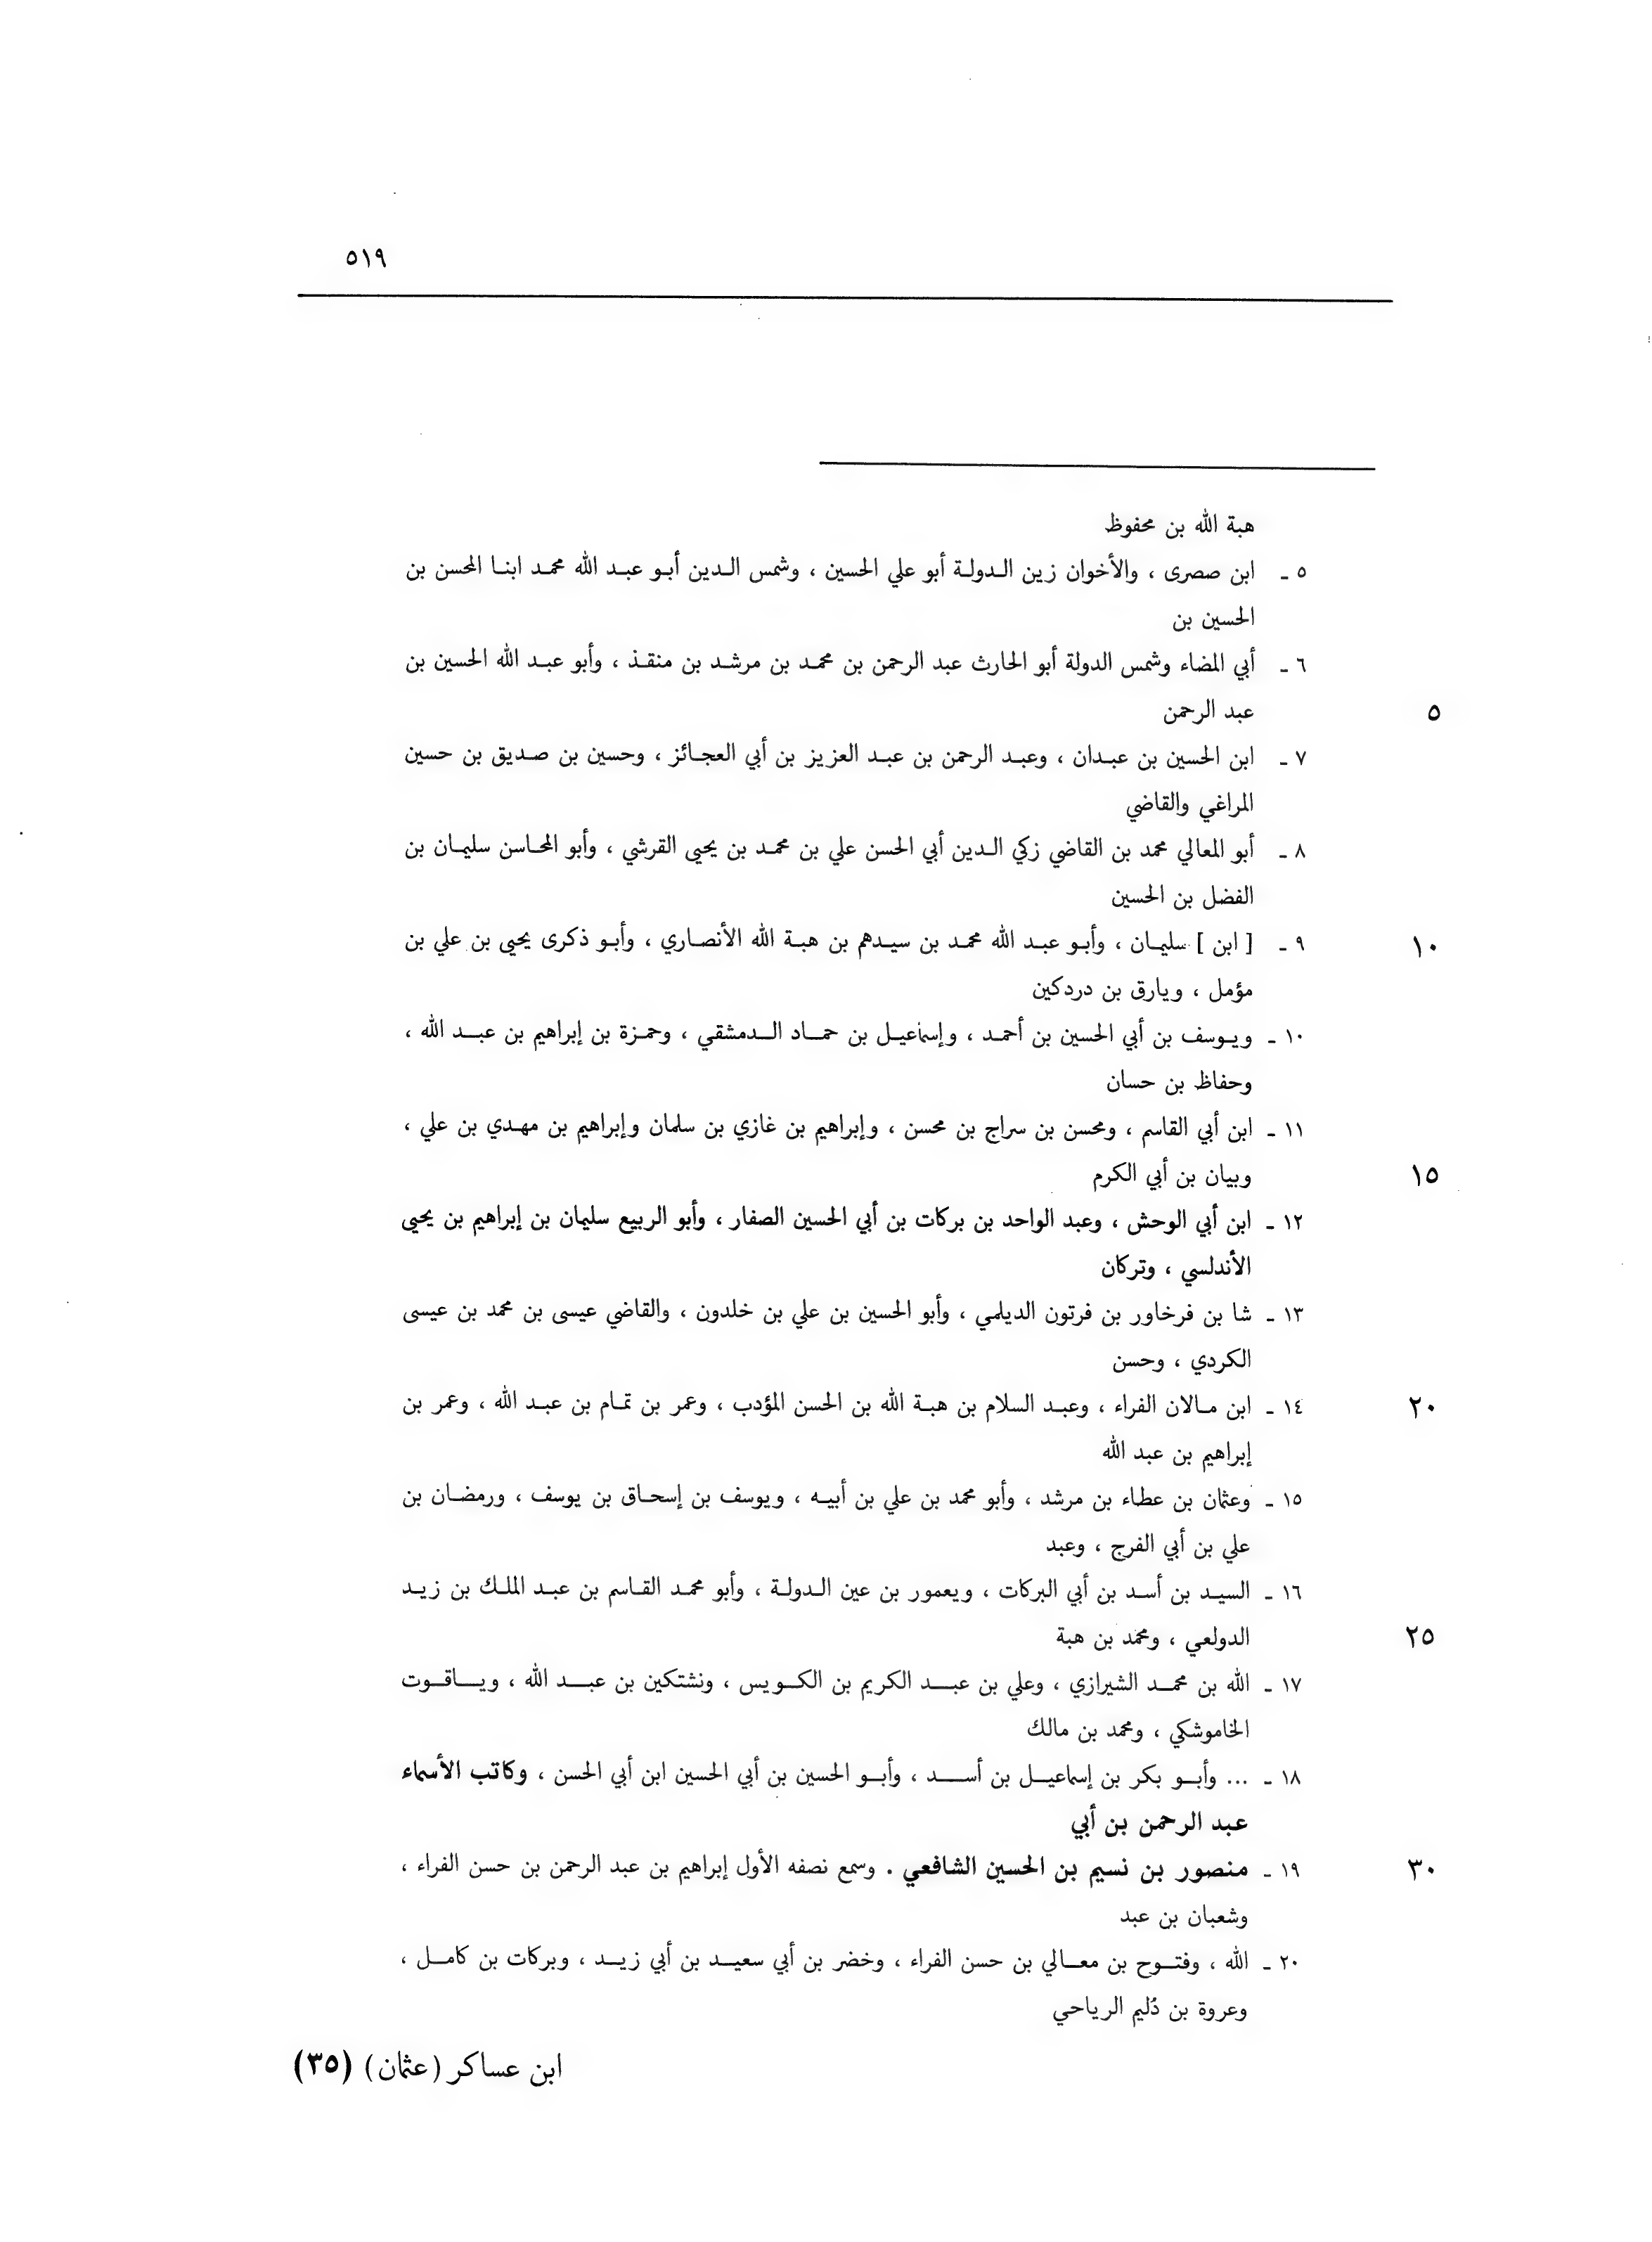 ٥١٩
هبة الله بن محفوظ
٥ ـ ابن صصرى ، والأخوان زين الدولة أبو علي الحسين ، وشمس الدين أبو عبد الله محمد ابنا المحسن بن
الحسين بن
٦ ـ أبي المضاء وشمس الدولة أبو الحارث عبد الرحمن بن محمد بن مرشد بن منقذ ، وأبو عبد الله الحسين بن
عبد الرحمن ٥
٧ ـ ابن الحسين بن عبدان ، وعبد الرحمن بن عبد العزيز بن أبي العجائز ، وحسين بن صديق بن حسين
المراغي والقاضي
٨ ـ أبو المعالي محمد بن القاضي زكي الدين أبي الحسن علي بن محمد بن يحيى القرشي ، وأبو المحاسن سليمان بن
الفضل بن الحسين
٩ ـ [ ابن ] سليمان ، وأبو عبد الله محمد بن سيدهم بن هبة الله الأنصاري ، وأبو ذكرى يحيى بن علي بن ١٠
مؤمل ، ويارق بن دردكين
١٠ ـ ويوسف بن أبي الحسين بن أحمد ، وإسماعيل بن حماد الدمشقي ، وحمزة بن إبراهيم بن عبد الله ،
وحفاظ بن حسان
١١ ـ ابن أبي القاسم ، ومحسن بن سراج بن محسن ، وإبراهيم بن غازي بن سلمان وإبراهيم بن مهدي بن علي ،
وبيان بن أبي الكرم ١٥
١٢ ـ ابن أبي الوحش ، وعبد الواحد بن بركات بن أبي الحسين الصفار ، وأبو الربيع سليمان بن إبراهيم بن يحيى
الأندلسي ، وتركان
١٣ ـ شا بن فرخاور بن فرتون الديلمي ، وأبو الحسين بن علي بن خلدون ، والقاضي عيسى بن محمد بن عيسى
الكردي ، وحسن
١٤ ـ ابن مالان الفراء ، وعبد السلام بن هبة الله بن الحسن المؤدب ، وعمر بن تمام بن عبد الله ، وعمر بن ٢٠
إبراهيم بن عبد الله
١٥ ـ وعثمان بن عطاء بن مرشد ، وأبو محمد بن علي بن أبيه ، ويوسف بن إسحاق بن يوسف ، ورمضان بن
علي بن أبي الفرج ، وعبد
١٦ ـ السيد بن أسد بن أبي البركات ، ويعمور بن عين الدولة ، وأبو محمد القاسم بن عبد الملك بن زيد
الدولعي ، ومحمد بن هبة ٢٥
١٧ ـ الله بن محمد الشيرازي ، وعلي بن عبد الكريم بن الكويس ، ونشتكين بن عبد الله ، وياقوت
الخاموشكي ، ومحمد بن مالك
١٨ ـ ... وأبو بكر بن إسماعيل بن أسد ، وأبو الحسين بن أبي الحسين ابن أبي الحسن ، وكاتب الأسماء
عبد الرحمن بن أبي
١٩ ـ منصور بن نسيم بن الحسين الشافعي . وسمع نصفه الأول إبراهيم بن عبد الرحمن بن حسن الفراء ، ٣٠
وشعبان بن عبد
٢٠ ـ الله ، وفتوح بن معالي بن حسن الفراء ، وخضر بن أبي سعيد بن أبي زيد ، وبركات بن كامل ،
وعروة بن دُليم الرياحي
ابن عساكر (عثمان) (٣٥)